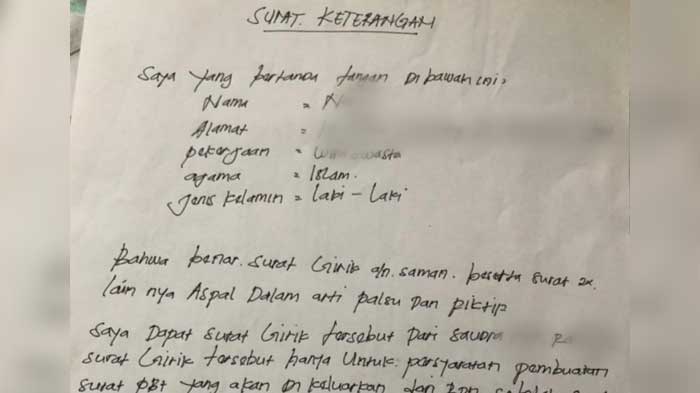 SURAT KETERANGAN
Saya yang bertanda tangan Dibawah ini:
Nama =
Alamat =
pekerjaan =
agama = Islam.
Jenis Kelamin = Laki - Laki
Bahwa benar. surat Girik a/n. saman. beserta surat 2x.
lain nya Aspal Dalam arti palsu Dan piktip
Saya Dapat surat Girik tersebut Dari
surat Girik tersebut hanya Untuk: parsyaratan pembuatan
surat PBT yang akan Di Keluarkan dan BPN